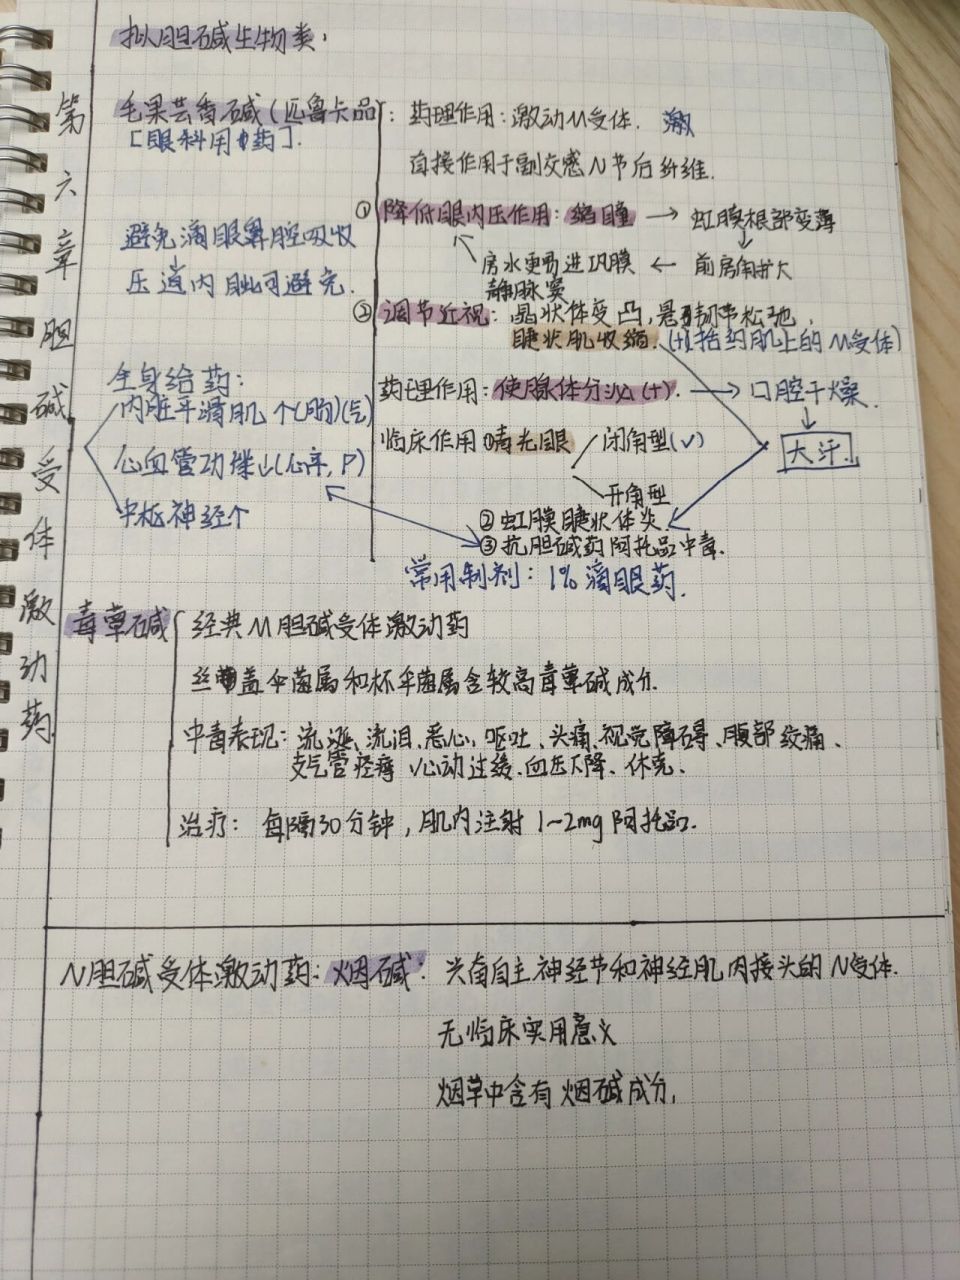 第六章 胆碱受体激动药
拟胆碱生物类：
毛果芸香碱（匹鲁卡品）：药理作用：激动M受体. 激
[眼科用药].
直接作用于副交感N节后纤维.
①降低眼内压作用：缩瞳 → 虹膜根部变薄
↓
房水更易进巩膜 ← 前房角扩大
静脉窦
避免滴眼鼻腔吸收
压迫内眦可避免.
②调节近视：晶状体变凸，悬韧带松弛，
睫状肌收缩.（括约肌上的M受体）
全身给药：
内脏平滑肌个(胸)(气)
心血管功 (心率，P)
中枢神经个
药理作用：使腺体分泌(+). → 口腔干燥.
↓
大汗.
临床作用①青光眼 闭角型(√)
开角型
②虹膜睫状体炎
③抗胆碱药阿托品中毒.
常用制剂：1%滴眼药.
毒蕈碱 经典M胆碱受体激动药
丝盖伞菌属和杯伞菌属含较高毒蕈碱成分.
中毒表现：流涎、流泪、恶心、呕吐、头痛、视觉障碍、腹部绞痛、
支气管痉挛、心动过缓、血压下降、休克.
治疗：每隔30分钟，肌内注射1~2mg阿托品.
N胆碱受体激动药：烟碱：兴奋自主神经节和神经肌肉接头的N受体.
无临床实用意义
烟草中含有烟碱成分，